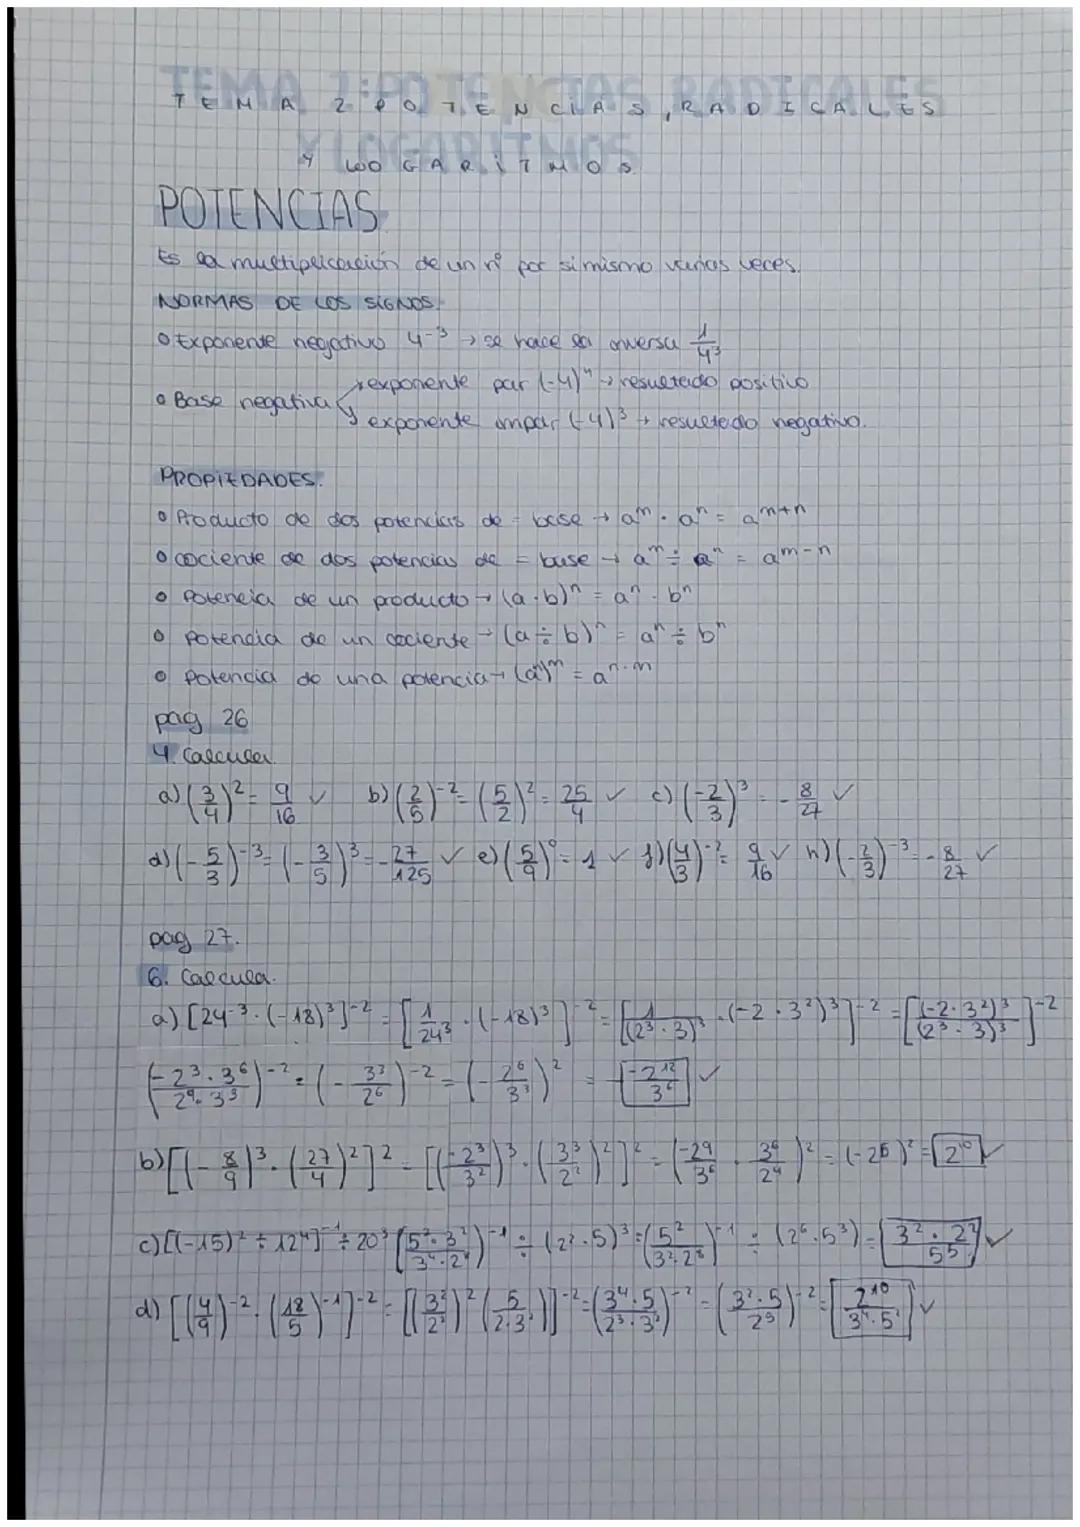 TEMA 2: POTENCIAS, RADICALES
Y LOGARITMOS
POTENCIAS
Es la multiplicación de un nº por si mismo varias veces.
NORMAS DE LOS SIGNOS.
• Exponente negativo 4⁻³ → se hace la inversa 1/4³
• Base negativa → exponente par (-4)⁴ → resultado positivo
→ exponente impar (-4)³ → resultado negativo.
PROPIEDADES.
• Producto de dos potencias de = base → aᵐ · aⁿ = aᵐ⁺ⁿ
• cociente de dos potencias de = base → aᵐ ÷ aⁿ = aᵐ⁻ⁿ
• Potencia de un producto → (a·b)ⁿ = aⁿ · bⁿ
• Potencia de un cociente → (a ÷ b)ⁿ = aⁿ ÷ bⁿ
• Potencia de una potencia → (aⁿ)ᵐ = aⁿ·ᵐ
pag 26
4. Calcula.
a) (3/4)² = 9/16 ✓ b) (2/5)⁻² = (5/2)² = 25/4 ✓ c) (-2/3)³ = -8/27 ✓
d) (-5/3)⁻³ = (-3/5)³ = -27/125 ✓ e) (5/9)⁰ = 1 ✓ f) (4/3)⁻² = 9/16 ✓ h) (-2/3)⁻³ = -8/27 ✓
pag 27.
6. Calcula.
a) [24⁻³ · (-18)³]⁻² = [1/24³ · (-18)³]⁻² = [1/(2³·3)³ · (-2·3²)³]⁻² = [(-2·3²)³/(2³·3)³]⁻²
(-2³·3⁶/2⁹·3³)⁻² = (-3³/2⁶)⁻² = (-2⁶/3³)² = -2¹²/3⁶ ✓
b) [(-8/9)³ · (27/4)²]² = [(-2³/3²)³ · (3³/2²)²]² = (-2⁹/3⁶ · 3⁶/2⁴)² = (-2⁵)² = 2¹⁰ ✓
c) [(-15)² ÷ 12⁴]⁻¹ ÷ 20³ (5²·3²/3⁴·2⁸)⁻¹ ÷ (2²·5)³ = (5²/3²·2⁸)⁻¹ ÷ (2⁶·5³) = 3²·2²/5⁵ ✓
d) [(4/9)⁻² · (18/5)⁻¹]⁻² = [(3²/2²)² (5/2·3²)]⁻² = (3⁴·5/2⁵·3²)⁻² = (3²·5/2⁵)⁻² = 2¹⁰/3⁴·5² ✓